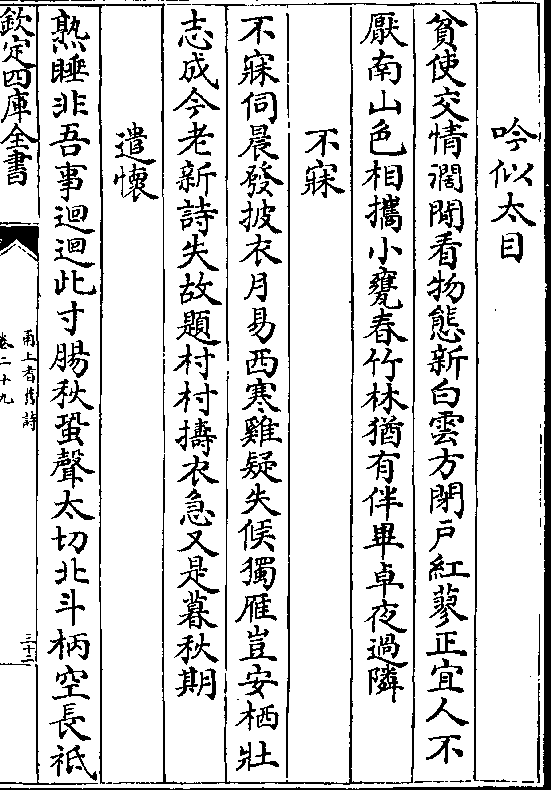 吟似太目
貧使交情濶閒看物態新白雲方閉戸紅蓼正宜人不
厭南山色相攜小甕春竹林猶有伴畢卓夜過隣
不寐
不寐伺晨發披衣月易西寒雞疑失候獨雁豈安栖壯
志成今老新詩失故題村村擣衣急又是暮秋期
遣懷
熟睡非吾事迴迴此寸腸秋蛩聲太切北斗柄空長祗
欽定四庫全書
甬上耆舊詩
卷二十九
三十二